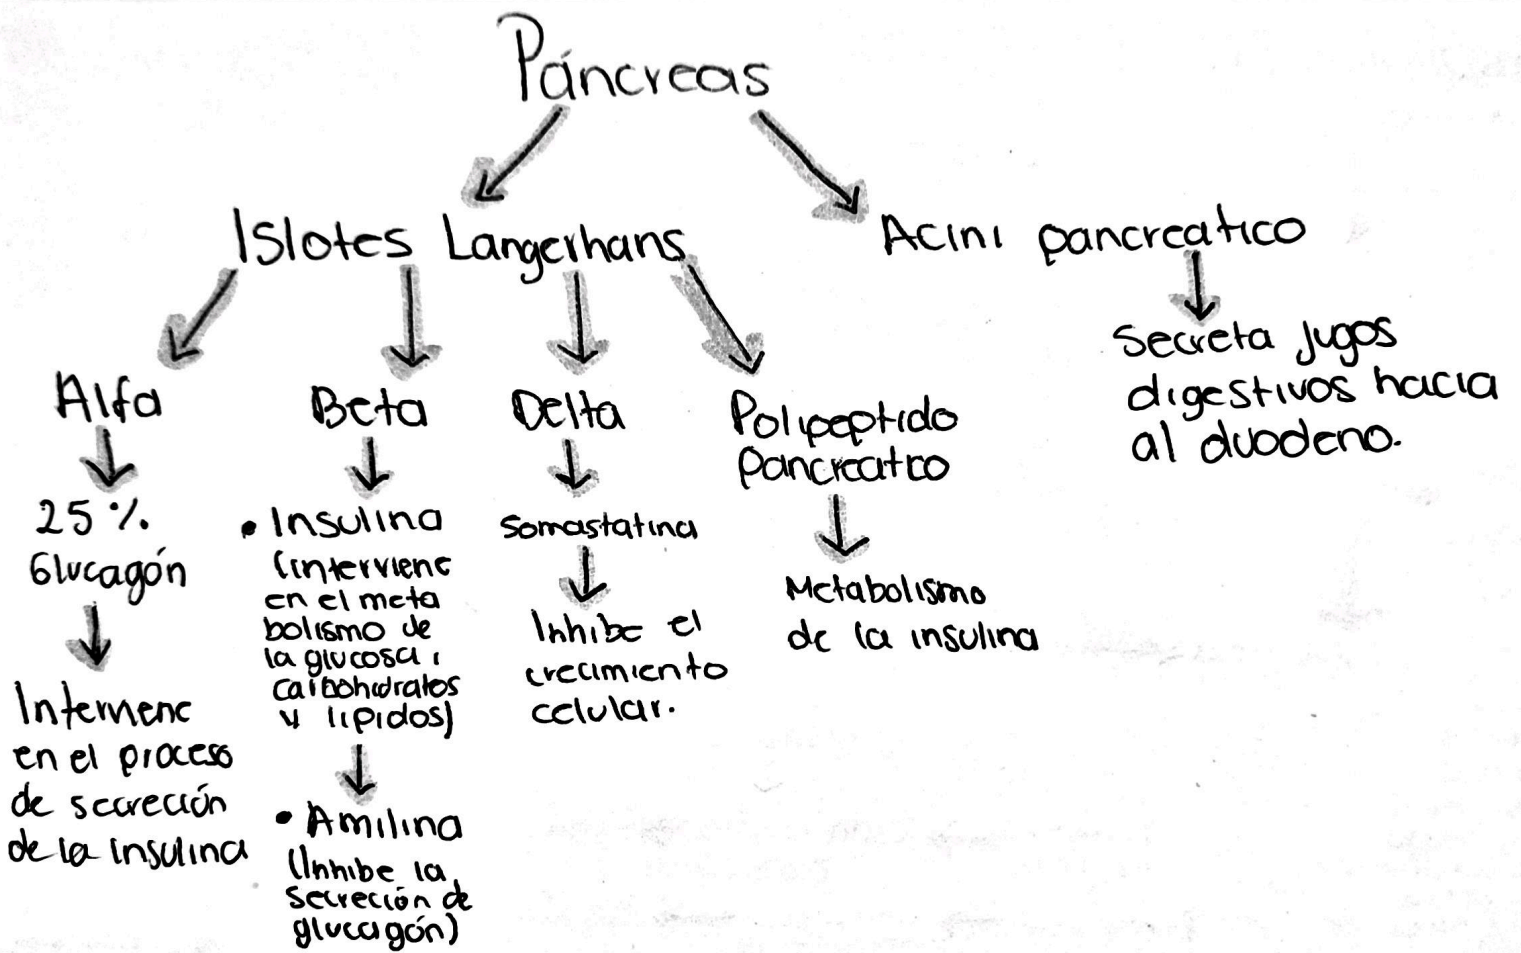 Páncreas
Islotes Langerhans
Acini pancreatico
Secreta jugos
digestivos hacia
al duodeno.
Alfa
25%
Glucagón
Interviene
en el proceso
de secreción
de la insulina
Beta
• Insulina
(interviene
en el meta
bolismo de
la glucosa,
carbohidratos
y lipidos)
• Amilina
(Inhibe la
secreción de
glucagón)
Delta
Somastatina
Inhibe el
crecimiento
celular.
Polipeptido
Pancreatico
Metabolismo
de la insulina